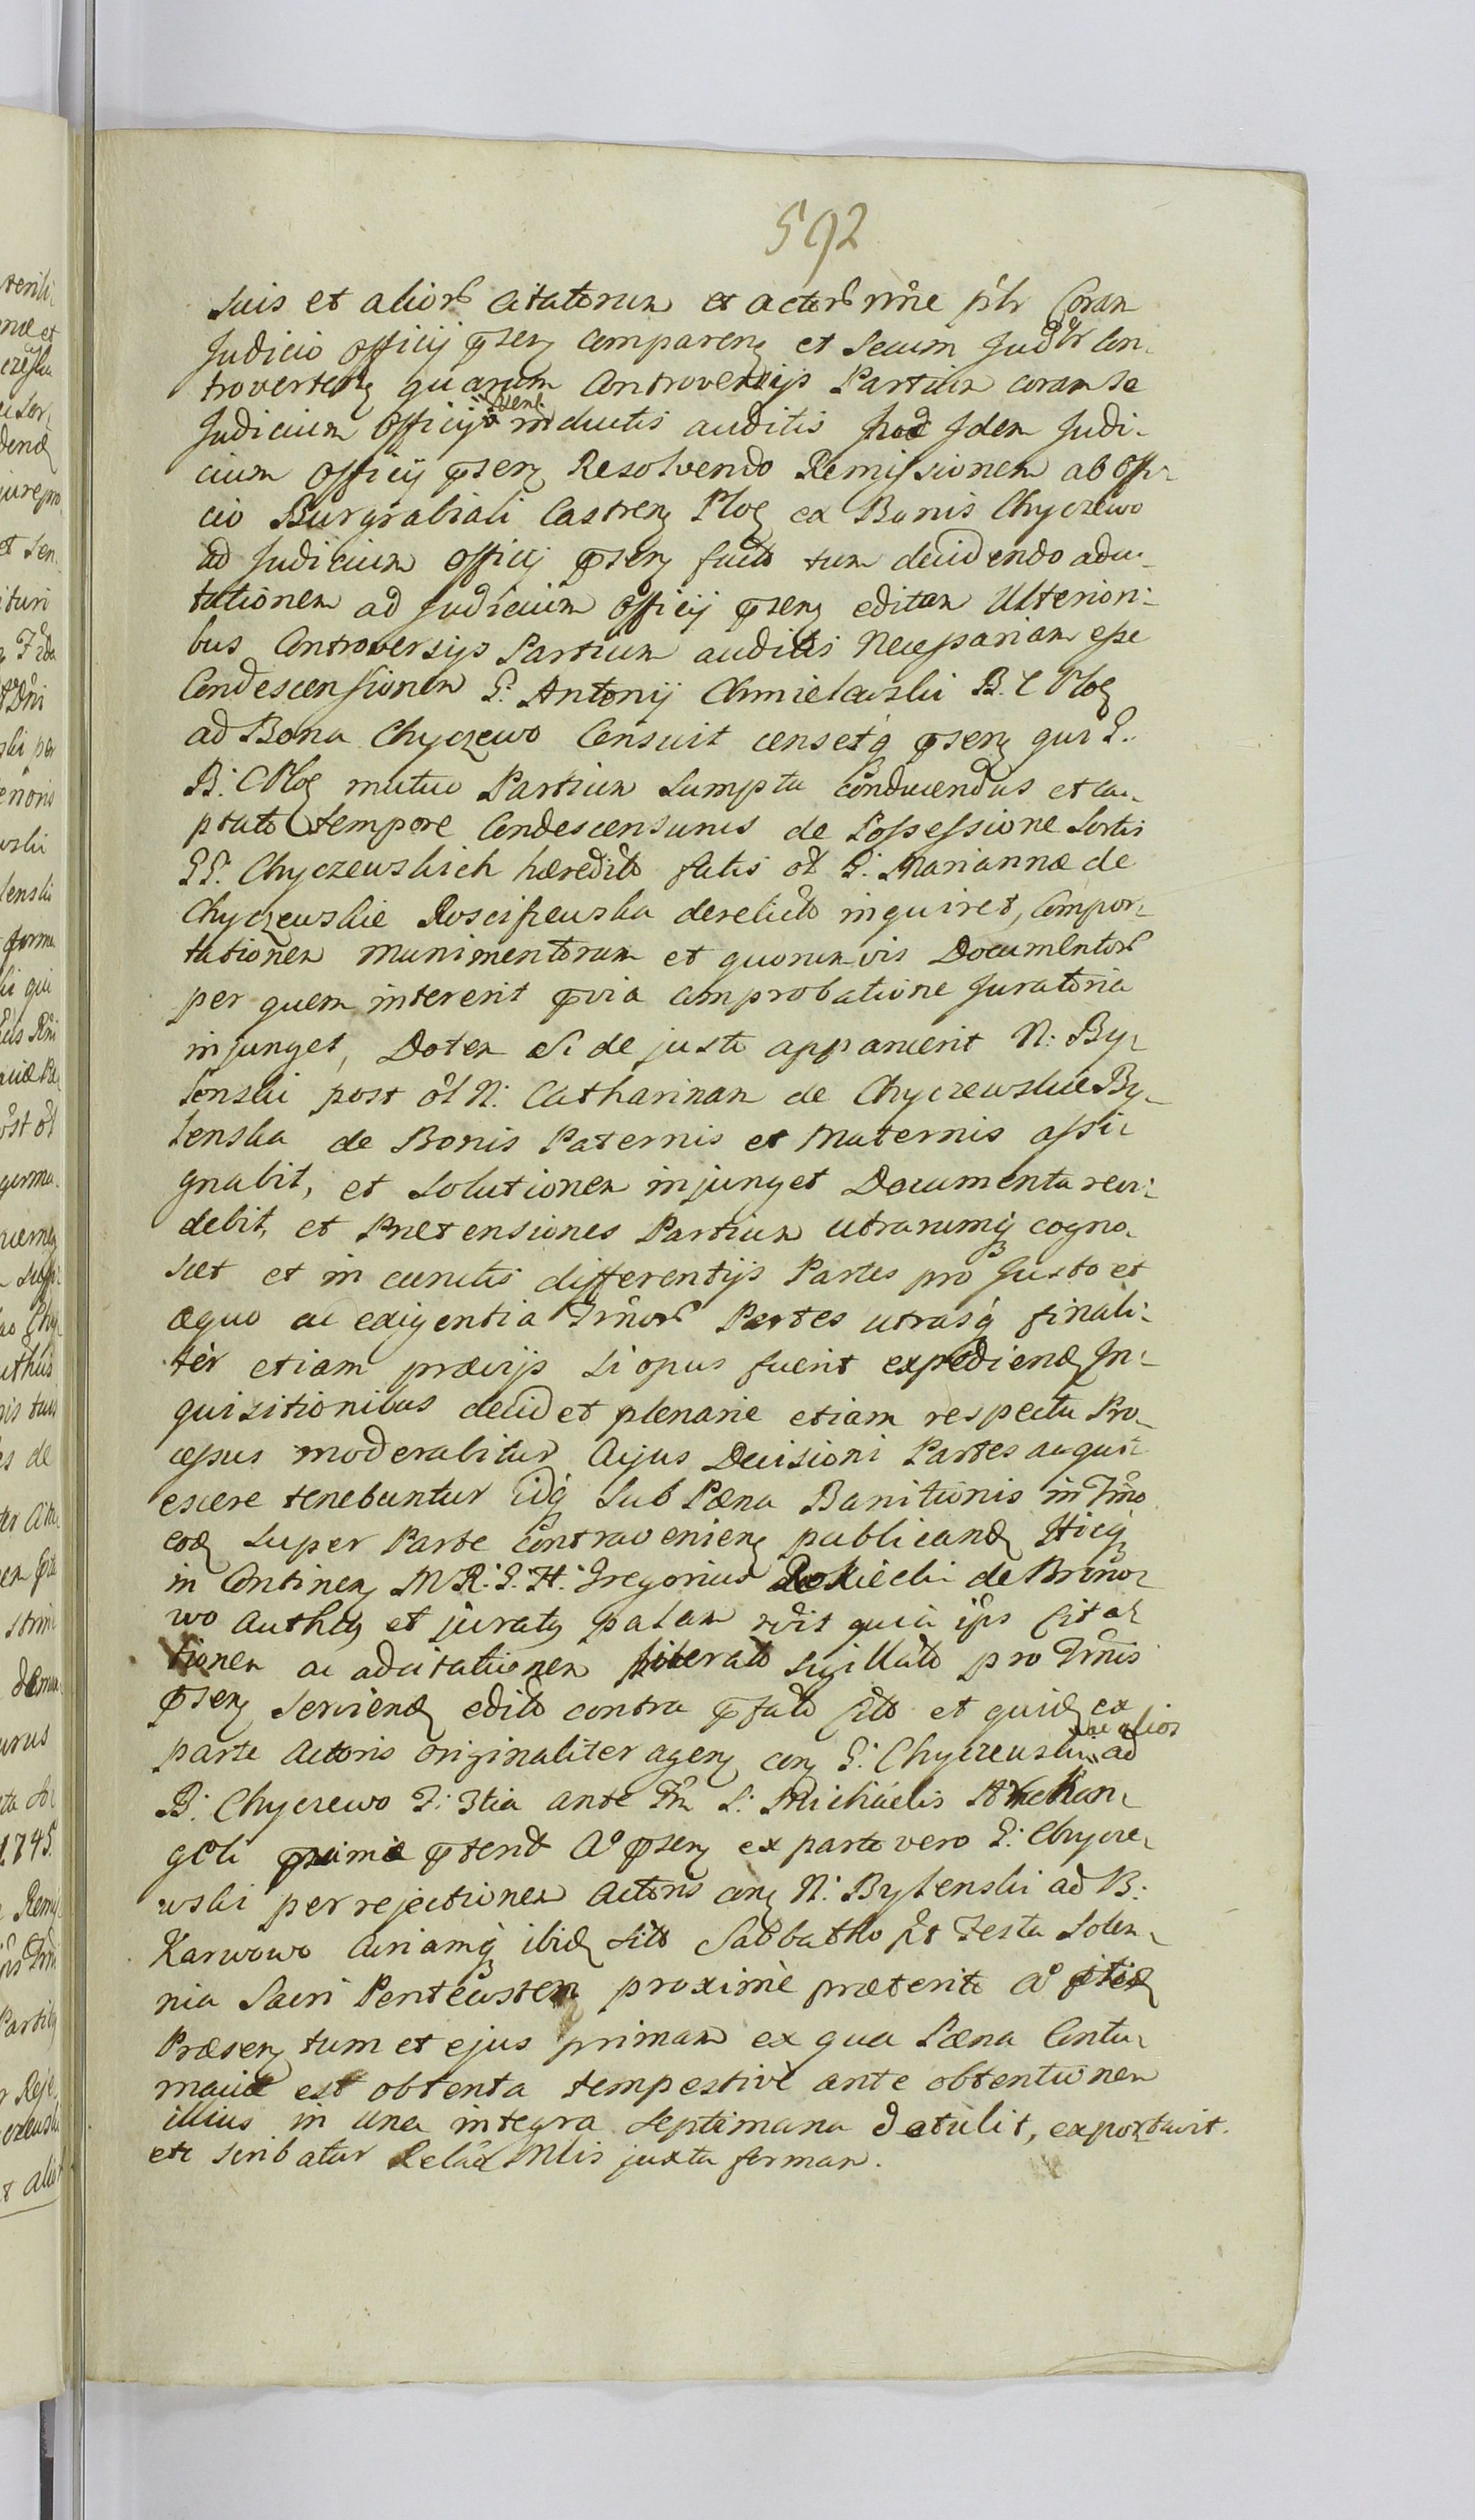 592
suis et alior citatorum et actor nne plr Coram
Judicio Officij psen comparen et secum Judlr Con-
troverten quarum Controversijs Partium coram se
Judicium Officij psent inductis auditis Idem Judi-
cium Officij psen Resolvendo Remissionem ab Offi-
cio Burgrabiali Castren Ploc ex Bonis Chyczewo
ad Judicium Officij psen fact tum decidendo adci-
tationem ad Judicium Officij psen editam Ulteriori-
bus Controversijs Partium auditis Necessariam esse
Condescensionem G: Antonij Chmielewski B. C Ploc
ad Bona Chyczewo Censuit censetq psen qui G.
B: C Ploc mutuo Partium sumptu conducendus et ca-
ptato tempore Condescensionis de Possessione Sortis
GG: Chyczewskich hæredit fatis ol G: Mariannæ de
Chyczewskie Rosciszewska derelict inquiret, Compor-
tationem Munimentorum et quorumvis Documentor
per quem intererit pvia comprobatione Juratoria
injunget, Dotem si de justo apparuerit N: By-
lenski post ol N: Catharinam de Chyczewskie By-
lenska de Bonis Paternis et Maternis assi-
gnabit, et solutionem injunget Documenta revi-
debit, et Prætensiones Partium utrarumq cogno-
scet et in cunctis differentijs Partes pro Justo et
æquo ac exigentia Trnor Partes utrasq finali-
ter etiam prævijs si opus fuerit expediend In-
quizitionibus decidet plenarie etiam respectu Pro-
cessus moderabitur Cujus Decisioni Partes acqui-
escere tenebuntur idq sub Pæna Banitionis in Trno
eod super Parte contravenien publicand Hicq
in Continen M R: G. H: Gregorius Rokicki de Brono-
wo authen et jurat palam rdit quia ips Cita-
tionem ac adcitationem literat sigillat pro Trnis
psen serviend edit contra pfat Citt et quid ex
parte Actoris originaliter agen con G: Chyczewski ac alios ad
B: Chyczewo F: 3tia ante Fm S: Michaelis Archan-
geli proxime ptent Ao psen ex parte vero G: Chycze-
wski per rejectionem Actoris con N: Bylenski ad B:
Karwowo Curiamq ibid sitt Sabbatho pt Festa Solen-
nia Sacri Pentecosten proxime præterit Ao itid
Præsen tum et ejus primam ex qua Pæna Contu-
maciæ est obtenta tempestive ante obtentionem
illius in una integra septimana detulit, exportavit.
etc scribatur Relaõ Mlis juxta formam.